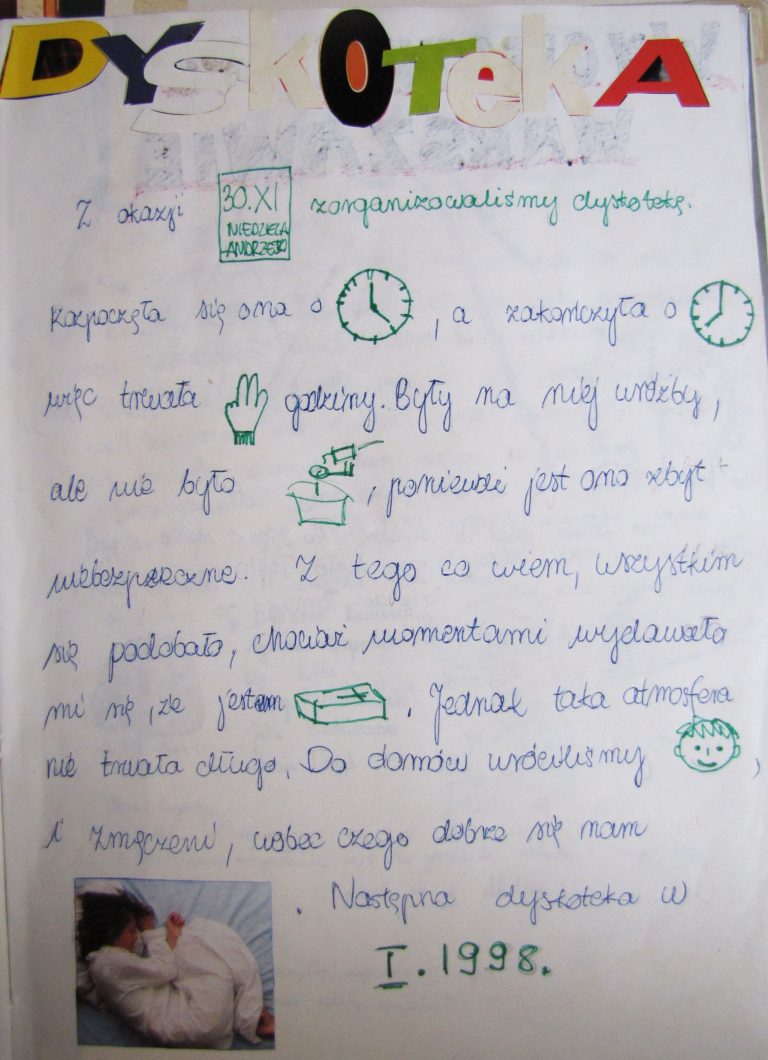 DYSKOTEKA
Z okazji 30.XI NIEDZIELA ANDRZEJKI zorganizowaliśmy dyskotekę.
Rozpoczęła się ona o , a zakończyła o
więc trwała godziny. Były na niej wróżby,
ale nie było , ponieważ jest ono zbyt
niebezpieczne. Z tego co wiem, wszystkim
się podobało, chociaż momentami wydawało
mi się, że jestem . Jednak taka atmosfera
nie trwała długo. Do domów wróciliśmy ,
i zmęczeni, wobec czego dobrze się nam
. Następna dyskoteka w
I.1998.